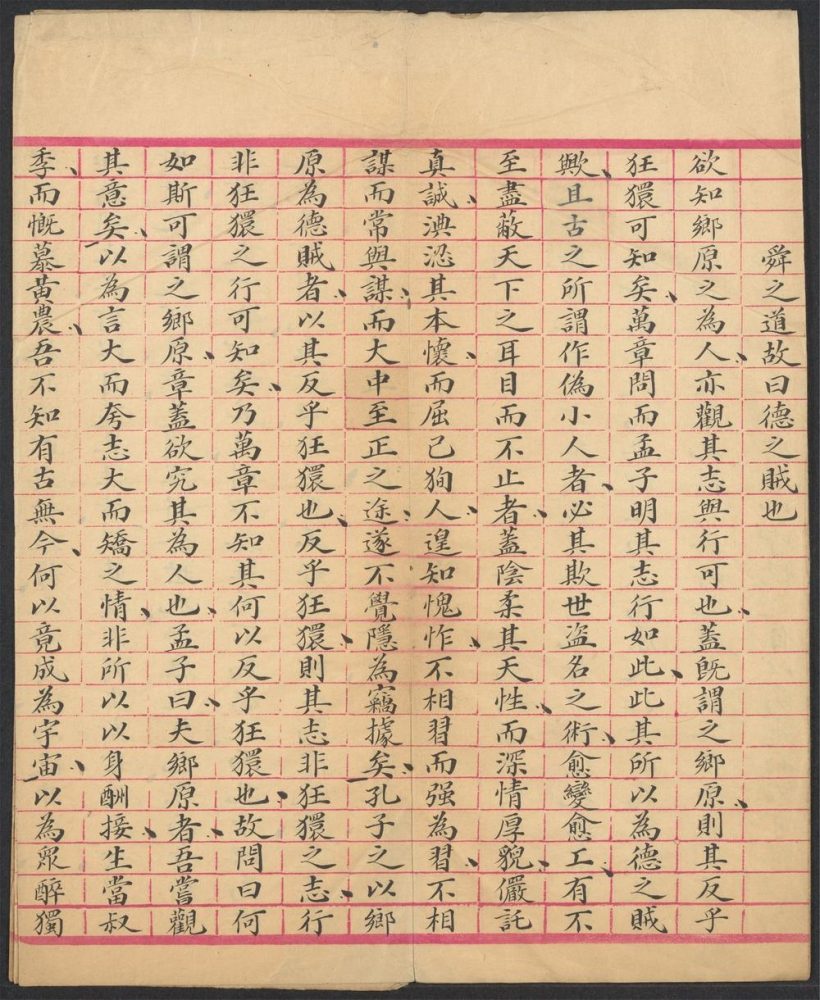 舜之道故曰德之賊也
欲知鄉原之為人、亦觀其志與行可也、蓋既謂之鄉原、則其反乎
狂獧可知矣、萬章問而孟子明其志行如此、此其所以為德之賊
歟、且古之所謂作偽小人者、必其欺世盜名之術、愈變愈工、有不
至盡蔽天下之耳目而不止者、蓋陰柔其天性、而深情厚貌、儼託
真誠、淟涊其本懷、而屈己狥人、遑知愧怍、不相習而强為習、不相
謀而常與謀、而大中至正之途、遂不覺隱為竊據矣、孔子之以鄉
原為德賊者、以其反乎狂獧也、反乎狂獧、則其志非狂獧之志、行
非狂獧之行可知矣、乃萬章不知其何以反乎狂獧也、故問曰何
如斯可謂之鄉原、章蓋欲究其為人也、孟子曰、夫鄉原者、吾嘗觀
其意矣、以為言大而夸志大而矯之情、非所以以身酬接、生當叔
季、而慨慕黃農、吾不知有古無今、何以竟成為宇宙、以為眾醉獨